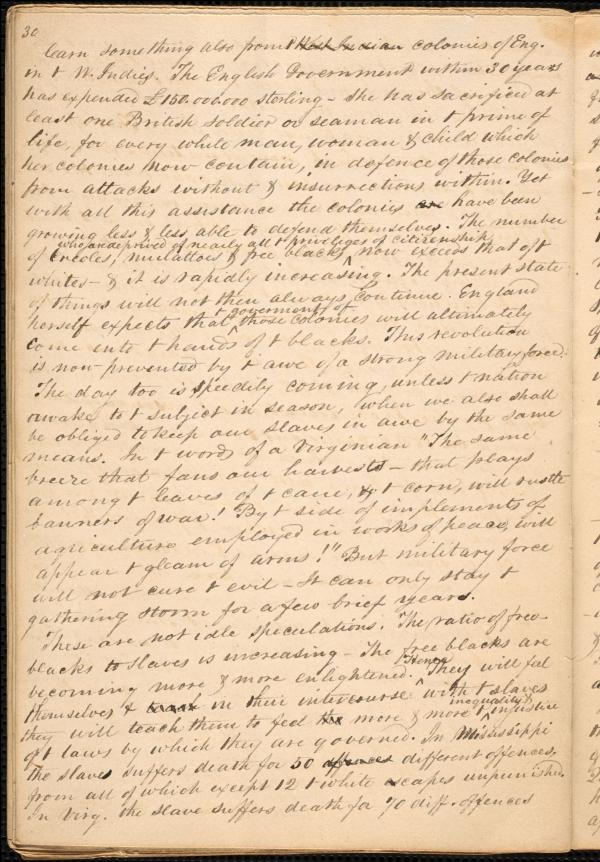 30
learn something also from t West Indian colonies of Eng.
in t W. Indies. The English Government within 30 years
has expended £150.000.000 sterling - she has sacrificed at
least one British soldier or seaman in t prime of
life, for every white man, woman & child which
her colonies now contain, in defence of those colonies
from attacks without & insurrections within. Yet
with all this assistance the colonies are have been
growing less & less able to defend themselves. The number
who are deprived of nearly all t privileges of citizenship
of Creoles, mulattoes & free blacks ^ now exceeds that of t
whites - & it is rapidly increasing. The present state
of things will not then always continue. England
t goverments of
herself expects that ^ those colonies will ultimately
come into t hands of t blacks. This revolution
is now prevented by t awe of a strong military force.
The day too is speedily coming, unless t nation
awake to t subject in season, when we also shall
be obliged to keep our slaves in awe by the same
means. In t words of a Virginian "The same
breeze that fans our harvests - that plays
among t leaves of t cane, & t corn, will rustle
banners of war! By t side of implements of
agriculture employed in works of peace, will
appear t gleam of arms!" But military force
will not cure t evil - It can only stay t
gathering storm for a few brief years.
These are not idle speculations. The ratio of free
blacks to slaves is increasing - The free blacks are
Hence
becoming more & more enlightened. ^ They will feel
themselves & in their intercourse with t slaves
inequality &
they will teach them to feel more & more t ^ injustice
of t laws by which they are governed. In Mississippi
the slave suffers death for 50 offences different offences,
from all of which except 12 t white escapes unpunished.
In Virg. the slave suffers death for 70 diff. offences